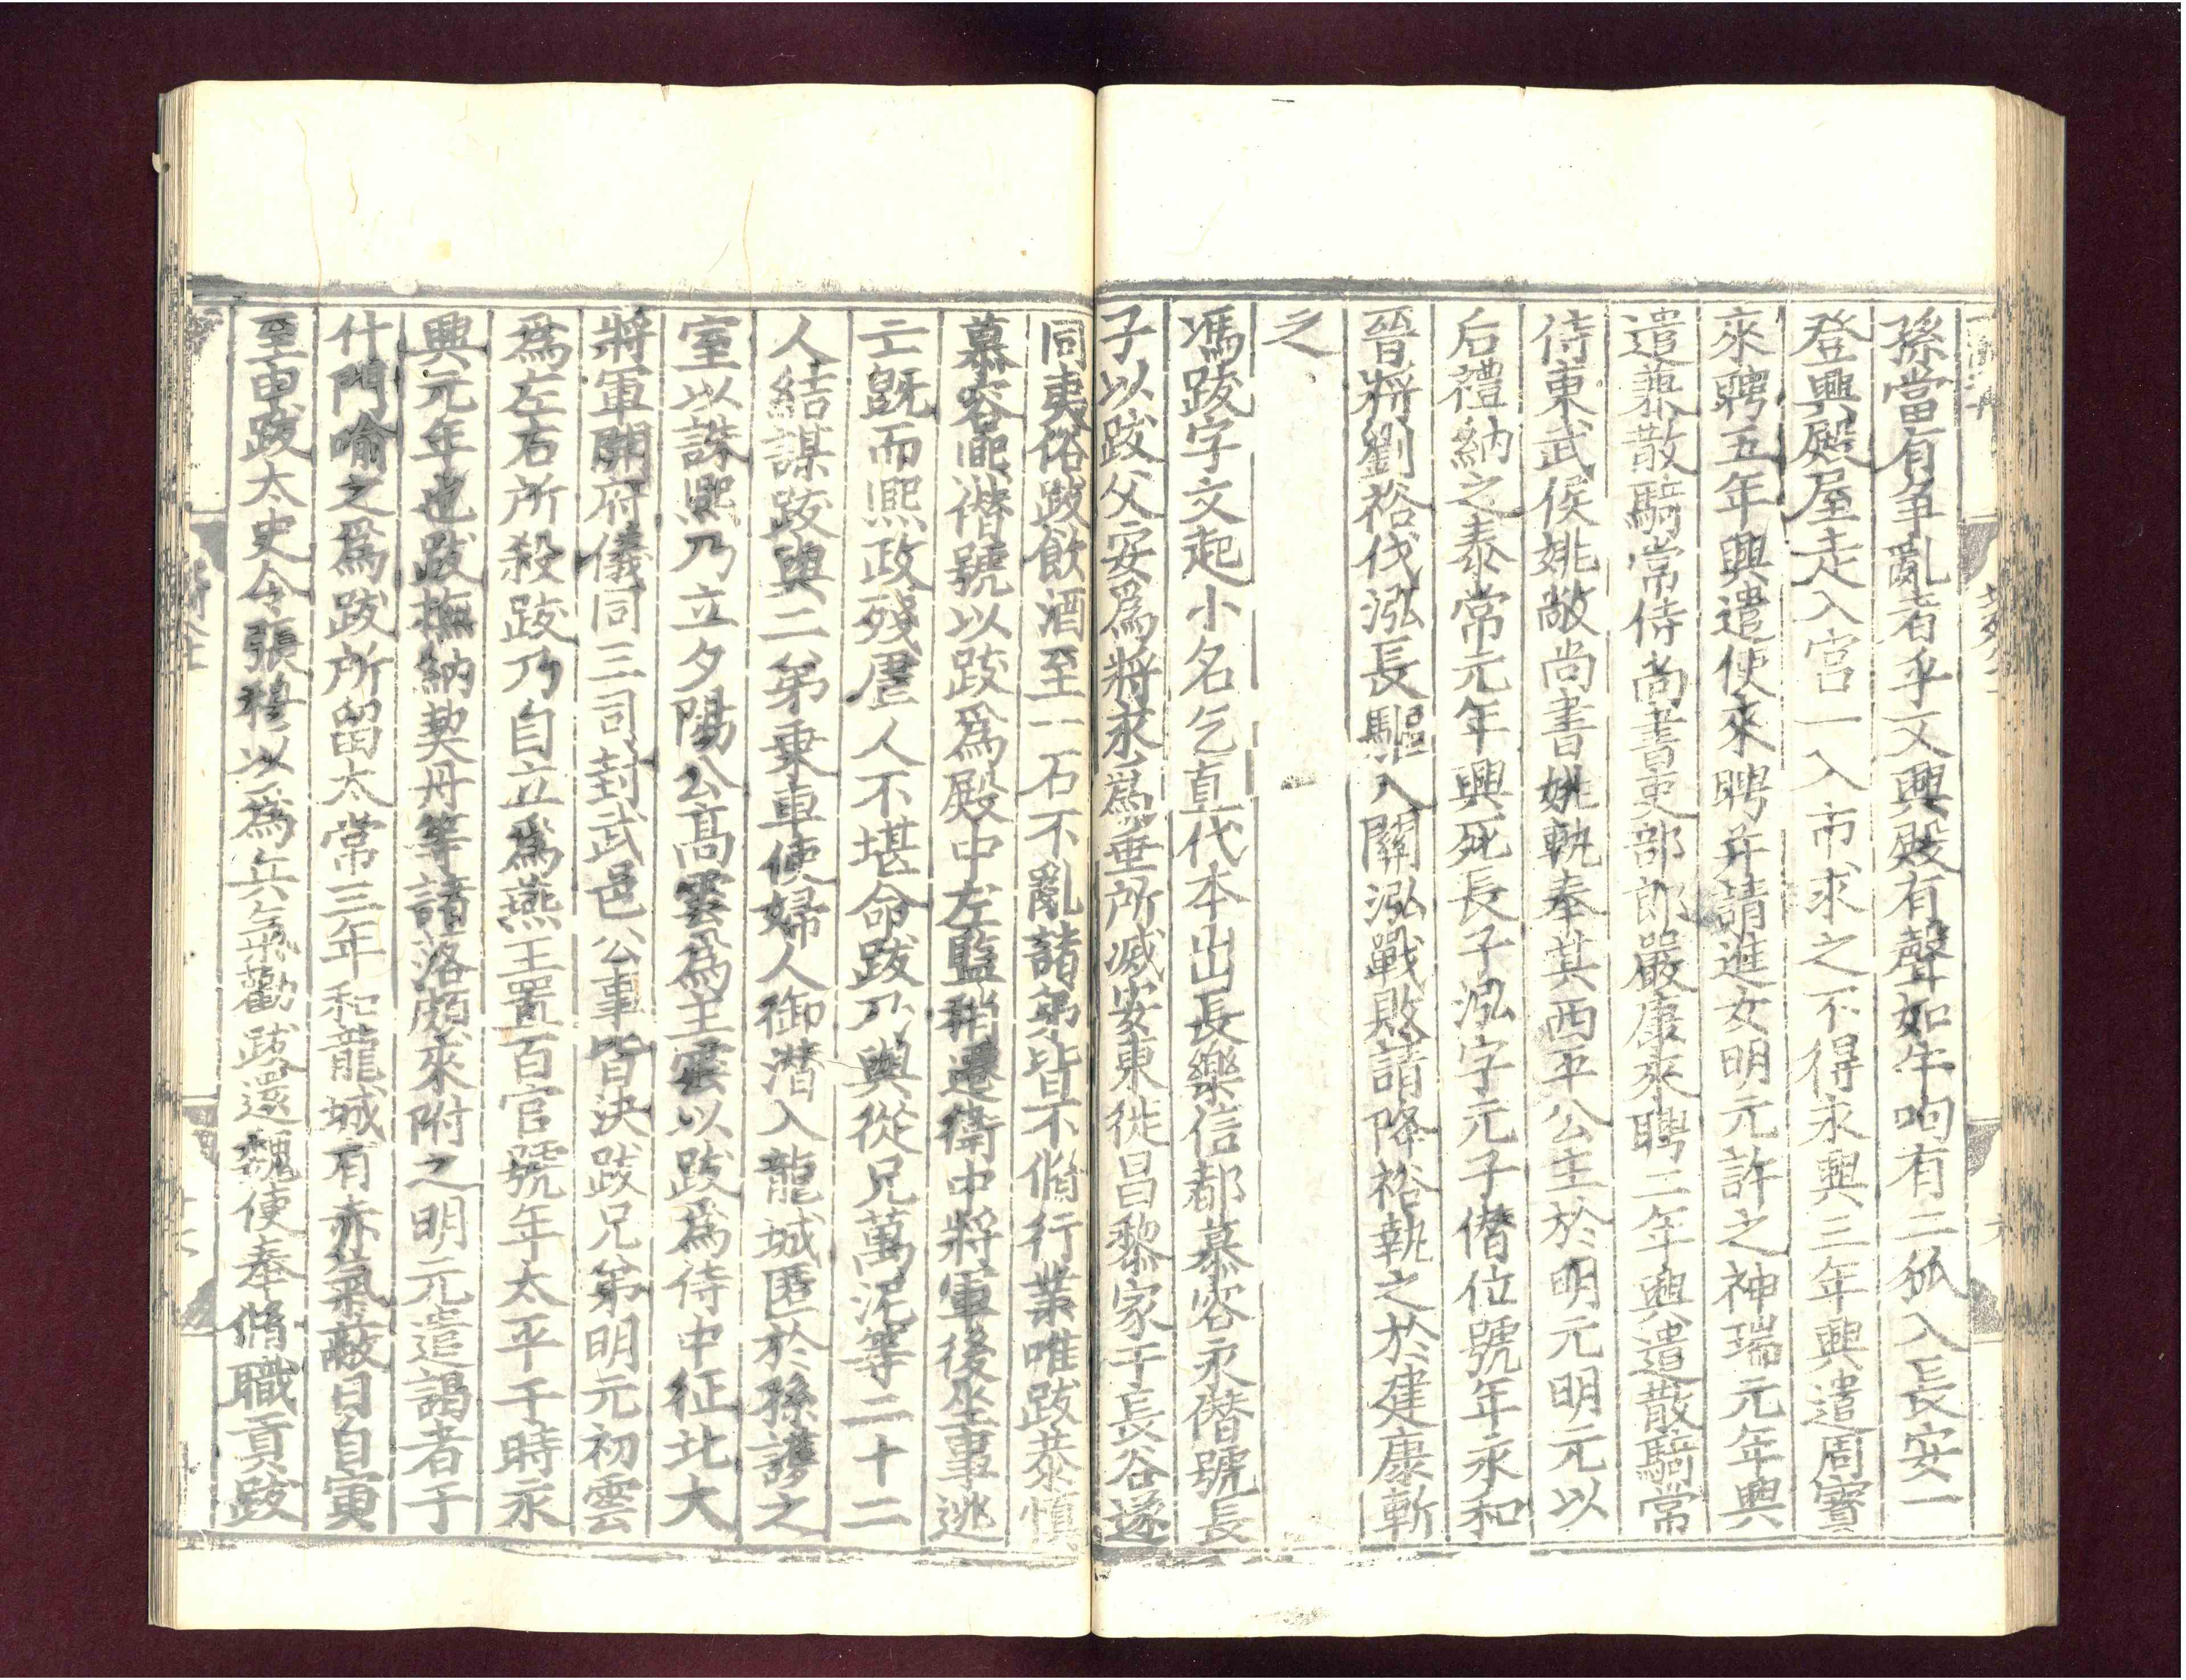 孫當有爭亂者乎又興殿有聲如牛呴有二狐入長安一
登興殿屋走入宮一入市求之不得永興三年興遣周寶
來聘五年興遣使來聘并請進女明元許之神瑞元年興
遣兼散騎常侍尚書吏部郎嚴康來聘二年興遣散騎常
侍東武侯姚敞尚書姚軌奉其西平公主於明元明元以
后禮納之泰常元年興死長子泓字元子僭位號年永和
晉將劉裕伐泓長驅入關泓戰敗請降裕執之於建康斬
之
馮跋字文起小名乞直代本出長樂信都慕容永僭號長
子以跋父安爲將永爲垂所滅安東徙昌黎家于長谷遂
同夷俗跋飲酒至一石不亂諸弟皆不脩行業唯跋恭慎
慕容熙僭號以跋爲殿中左監稍遷衛中將軍後坐事逃
亡旣而熙政殘虐人不堪命跋乃與從兄萬泥等二十二
人結謀跋與二弟乗車使婦人御潜入龍城匿於孫護之
室以誅熙乃立夕陽公高雲爲主雲以跋爲侍中征北大
將軍開府儀同三司封武邑公事皆決跋兄弟明元初雲
爲左右所殺跋乃自立爲燕王置百官號年太平于時永
興元年也跋撫納契丹等諸落頗來附之明元遣謁者于
什門喻之爲跋所留太常三年和龍城有赤氣蔽日自寅
至申跋太史令張穆以爲兵氣勸跋還魏使奉脩職貢跋